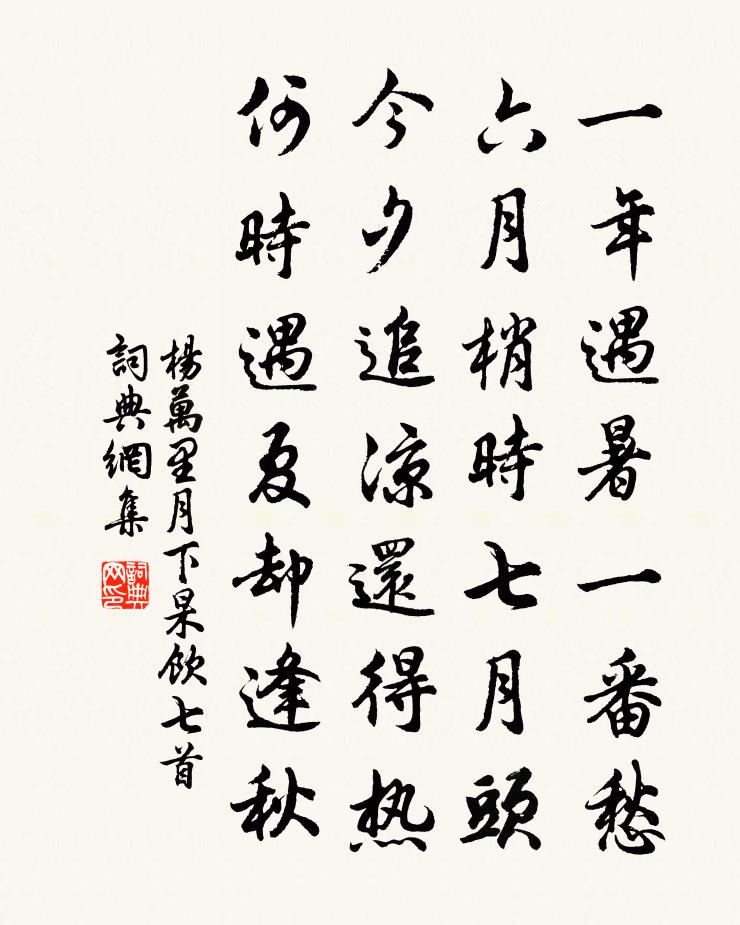 一年遇暑一番愁
六月梢時七月頭
今夕追涼還得热
何時遇夏却逢秋
楊萬里月下杲飲七首
詞典網集
詞典网印